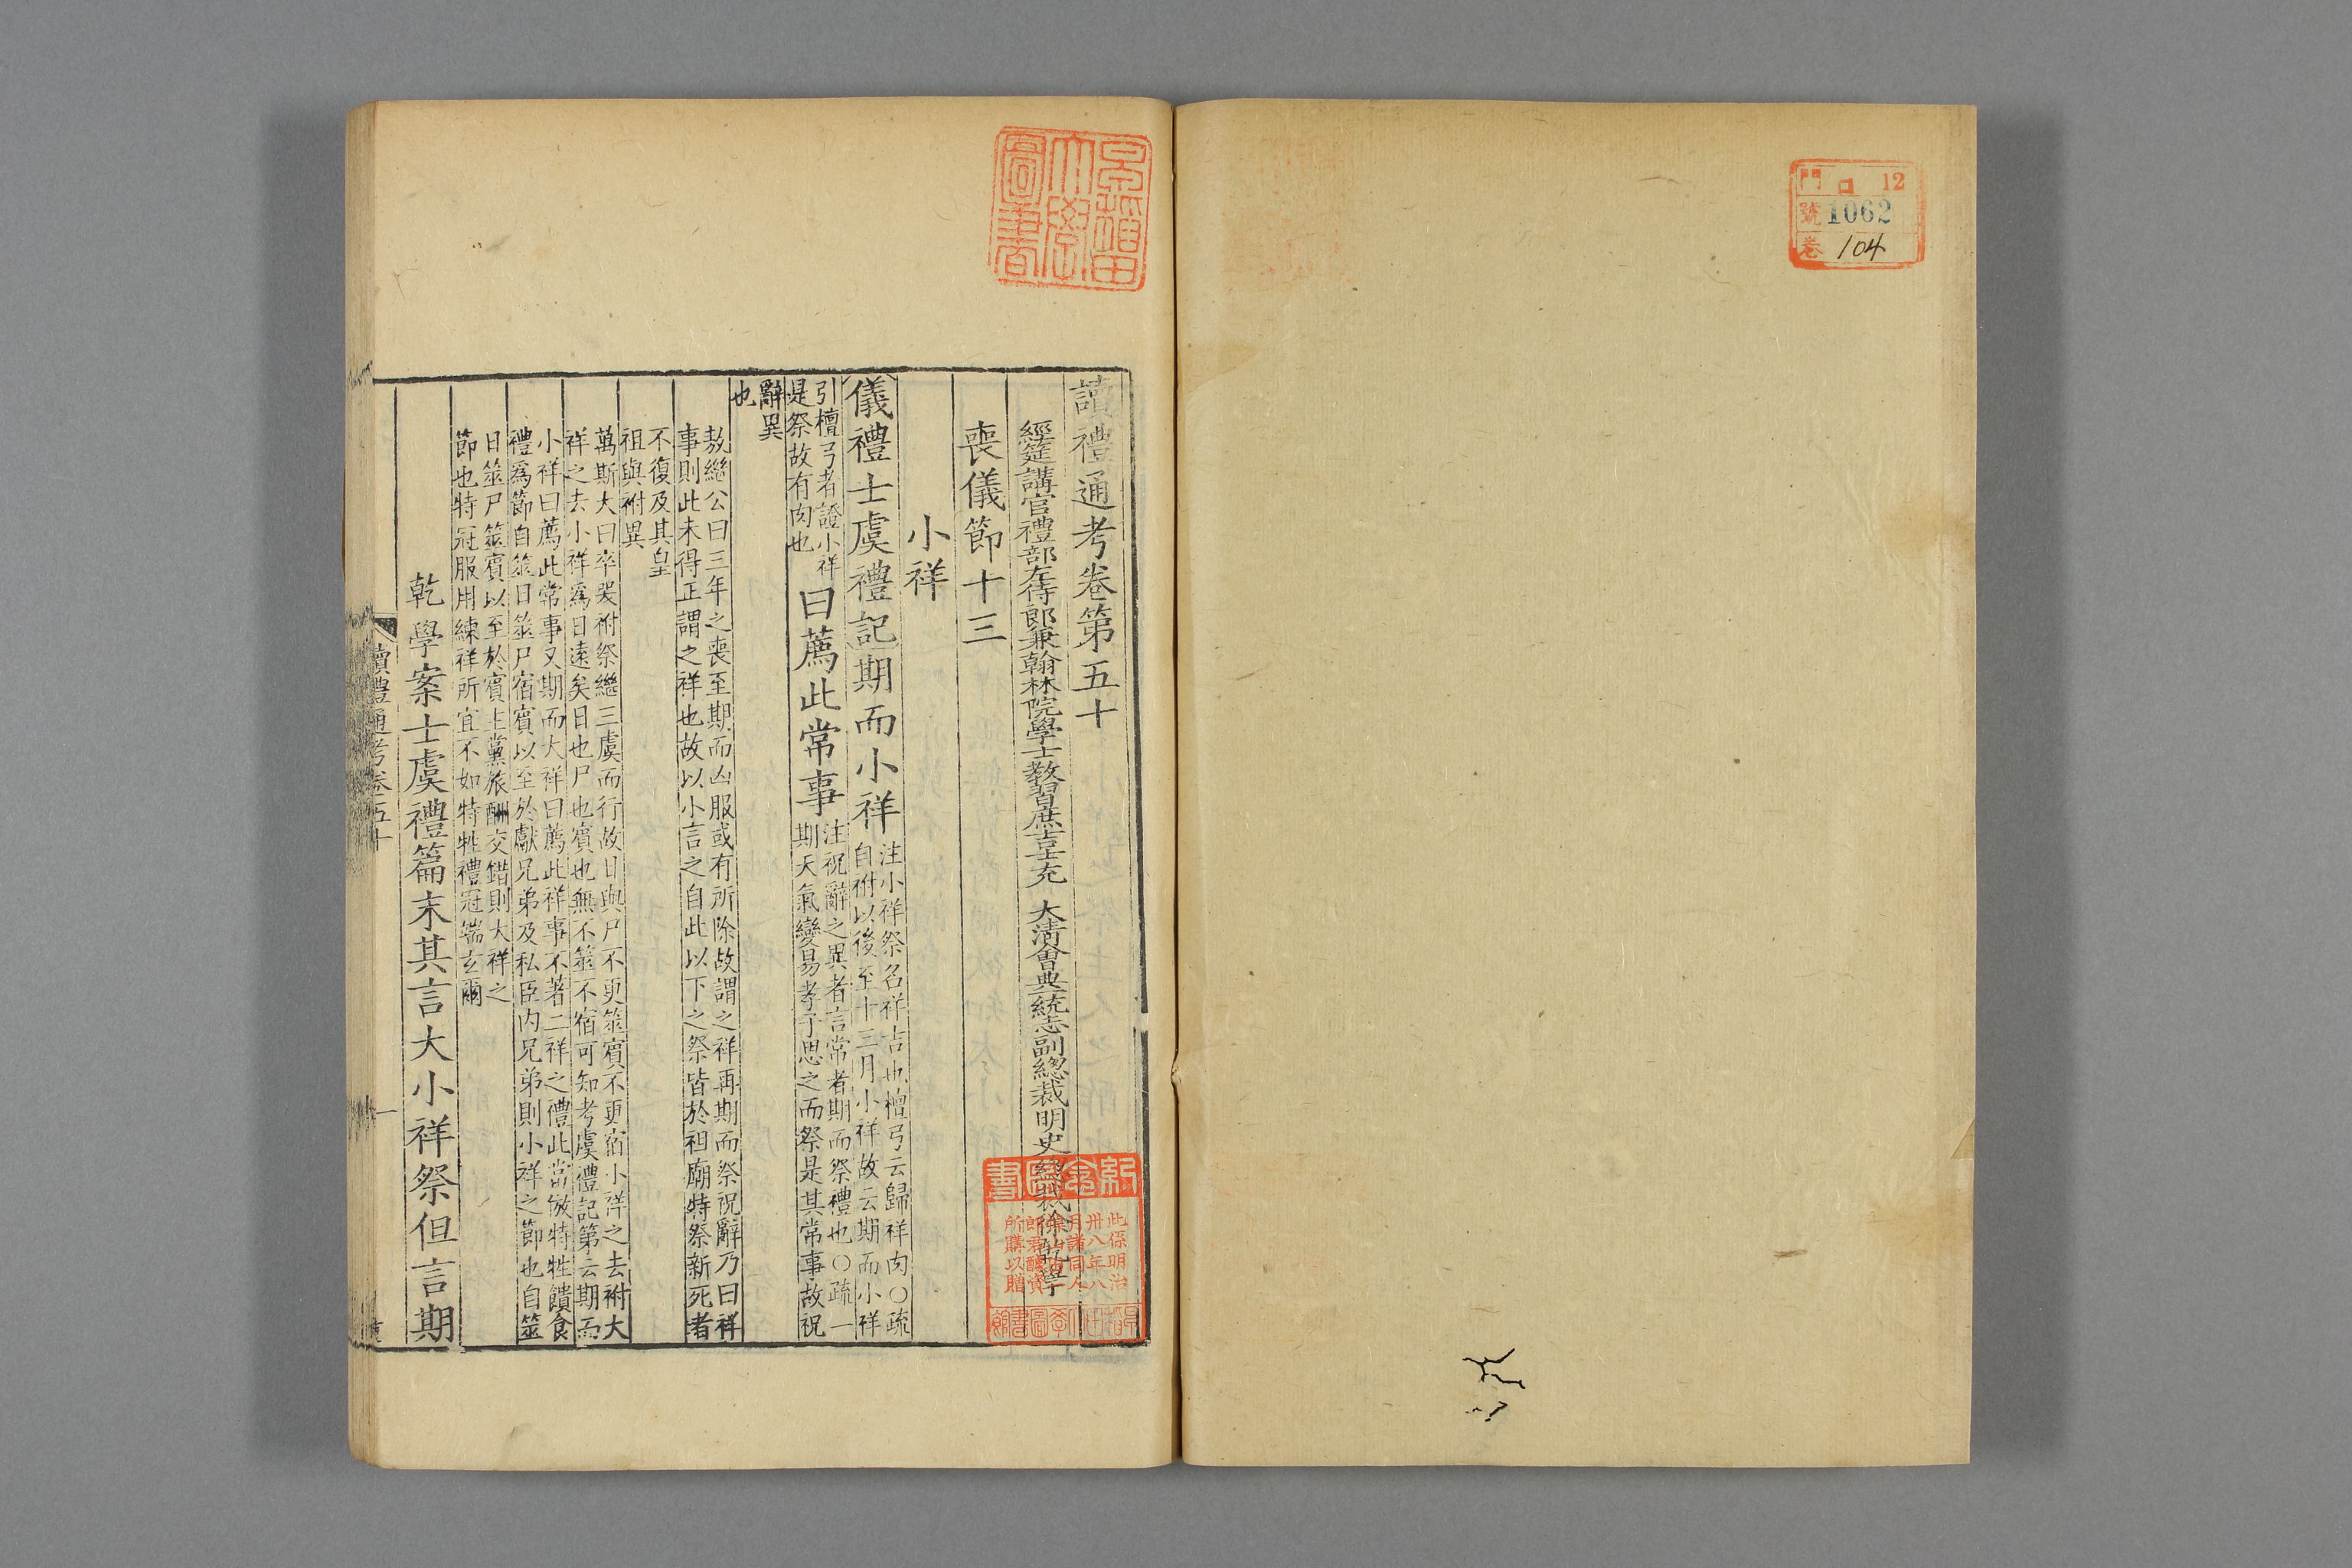 門 ロ 12
號 1062
卷 104
早稲田
大學
圖書
讀禮通考卷第五十
經筵講官禮部左侍郎兼翰林院學士教習庶吉士充 大清會典一統志副總裁明史總裁徐乾學
喪儀節十三
小祥
儀禮士虞禮記期而小祥
注小祥祭名祥吉也檀弓云歸祥肉○疏
自祔以後至十三月小祥故云期而小祥
引檀弓者證小祥
是祭故有肉也
曰薦此常事
注祝辭之異者言常者期而祭禮也○疏一
期天氣變易孝子思之而祭是其常事故祝
辭異
也
敖繼公曰三年之喪至期而凶服或有所除故謂之祥再期而祭祝辭乃曰祥
事則此未得正謂之祥也故以小言之自此以下之祭皆於祖廟特祭新死者
不復及其皇
祖與祔異
萬斯大曰卒哭祔祭繼三虞而行故日與尸不更筮賓不更宿小祥之去祔大
祥之去小祥爲日遠矣日也尸也賓也無不筮不宿可知考虞禮記第云期而
小祥曰薦此常事又期而大祥曰薦此祥事不著二祥之禮此當倣特牲饋食
禮爲節自筮日筮尸宿賓以至於獻兄弟及私臣內兄弟則小祥之節也自筮
日筮尸筮賓以至於賓主黨旅酬交錯則大祥之
節也特冠服用練祥所宜不如特牲禮冠端玄爾
乾學案士虞禮篇末其言大小祥祭但言期
讀禮通考卷五十
一
紀念圖書
此係明治
卅八年八
月諸同人
所購以贈